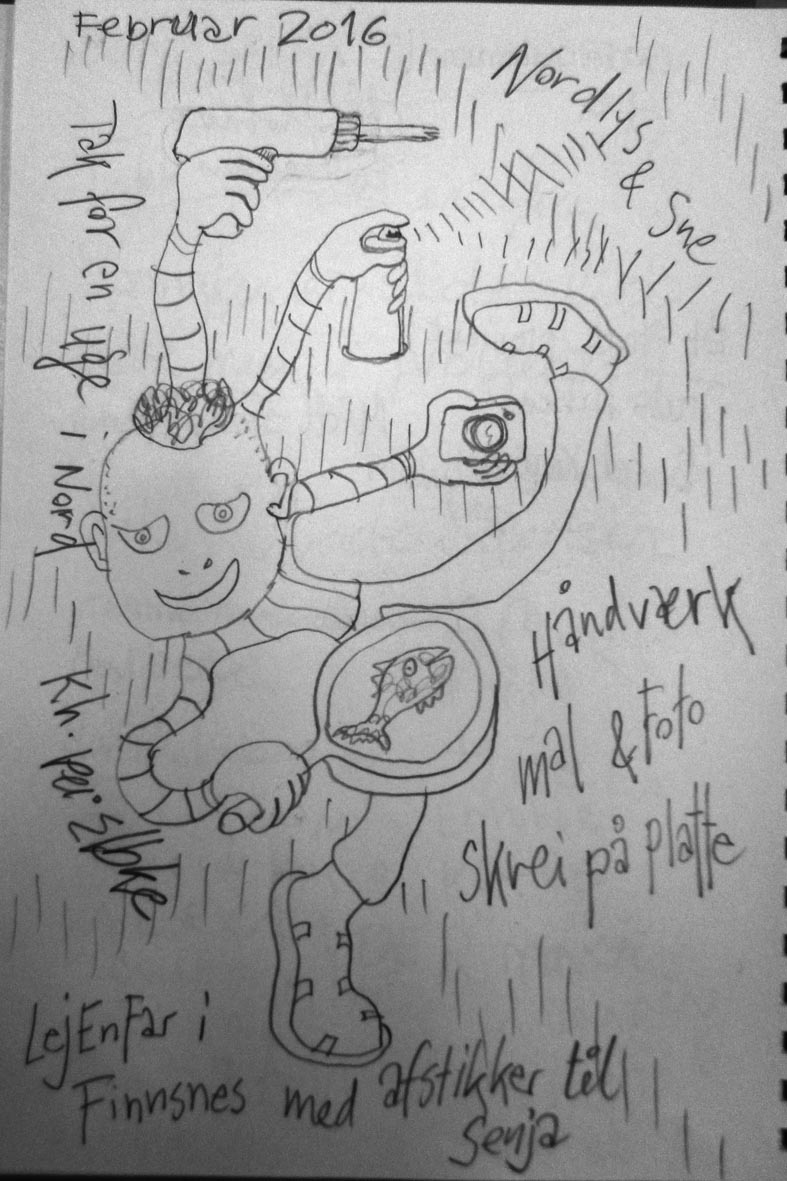 Februar 2016
Nordlys
& Sne
Tak for en uge i Nord
Håndværk
mal & Foto
skrei på platte
Kh. Pei
LejEnFar i
Finnsnes med afstikker til
Senja